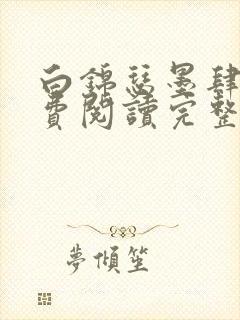 白錦瑟墨肆
費閱讀完整
夢傾笙